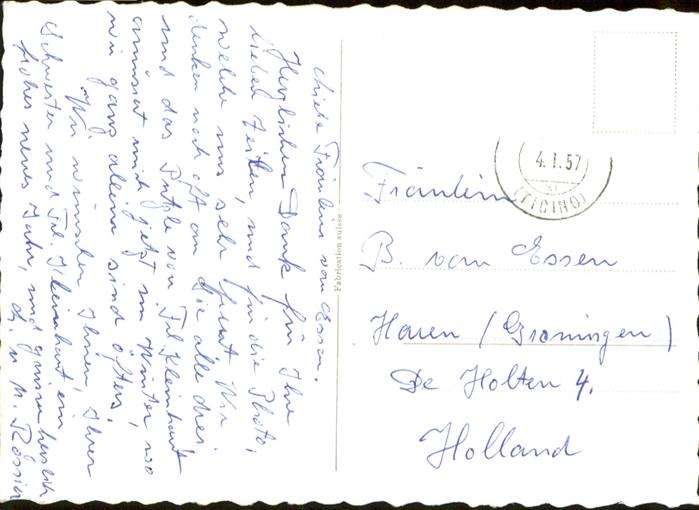 Liebe Fräulein van Essen.
Herzlichen Dank für Ihre
lieben Zeilen, und für die Photo,
welche uns sehr freut. Wir
denken noch oft an Sie alle drei.
und das Putzle von Frl. Kleinhaut
amüsiert uns jetzt im Winter, wo
wir ganz allein sind öfters.
Wir wünschen Ihnen, Ihrer
Schwester und Frl. ein
frohes neues Jahr, und grüssen herzlich
M. Rossier
Fabrication suisse
4.1.57
(TICINO)
Fräulein
B. van Essen
Haren (Groningen)
De Holten 4.
Holland